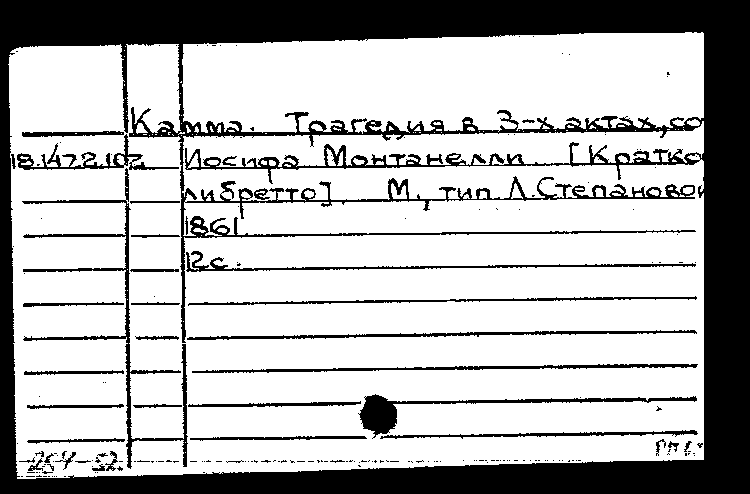 Камма. Трагедия в 3-х актах, со
18.147.2.102 Иосифа Монтанелли. [Кратко
либретто]. М., тип Л. Степановой
1861.
12с.
264-52.